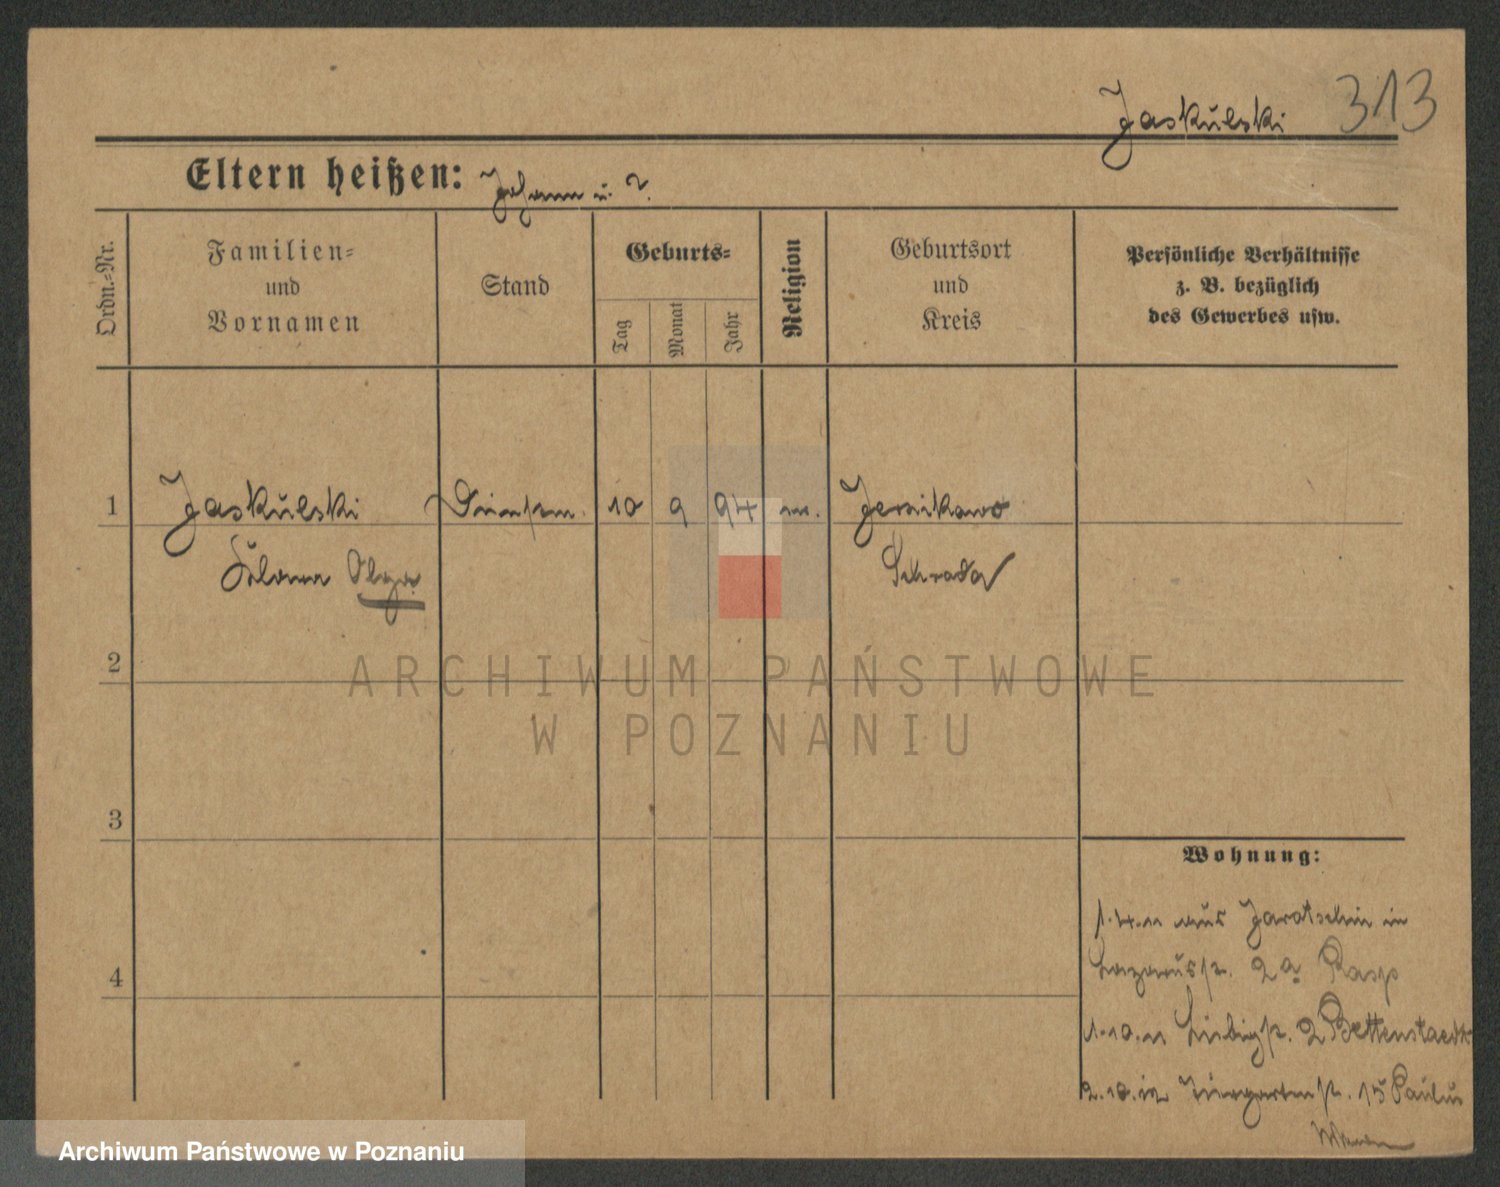 313
Jaskulski
Eltern heißen: Johann u. ?
Ordn.-Nr.
Familien-
und
Vornamen
Stand
Geburts-
Tag
Monat
Jahr
Religion
Geburtsort
und
Kreis
Persönliche Verhältnisse
z. B. bezüglich
des Gewerbes usw.
1 Jaskulski 10 9 94
Olga Schroda
2
3
4
ARCHIWUM PAŃSTWOWE
W POZNANIU
Wohnung:
1.4.11 aus Jarotschin in
Lazarusstr. 2a Rasp
1.10.11 Liebigstr. 2 Bettenstaedt
2.10.12 Tiergartenstr. 15 Paulus
Archiwum Państwowe w Poznaniu